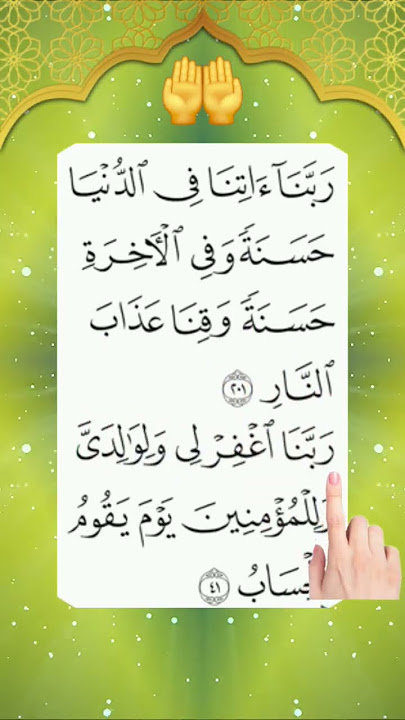 رَبَّنَآ ءَاتِنَا فِى ٱلدُّنْيَا
حَسَنَةً وَفِى ٱلْـَٔاخِرَةِ
حَسَنَةً وَقِنَا عَذَابَ
ٱلنَّارِ ٢٠١
رَبَّنَا ٱغْفِرْ لِى وَلِوَٰلِدَىَّ
وَلِلْمُؤْمِنِينَ يَوْمَ يَقُومُ
ٱلْحِسَابُ ٤١